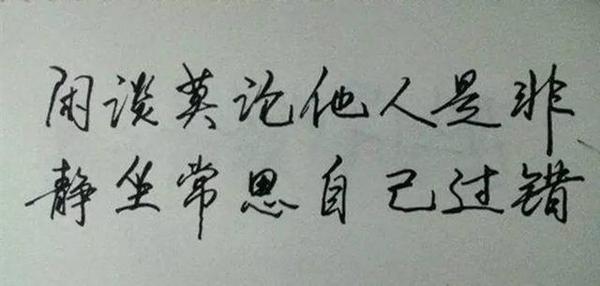 闲谈莫论他人是非
静坐常思自己过错